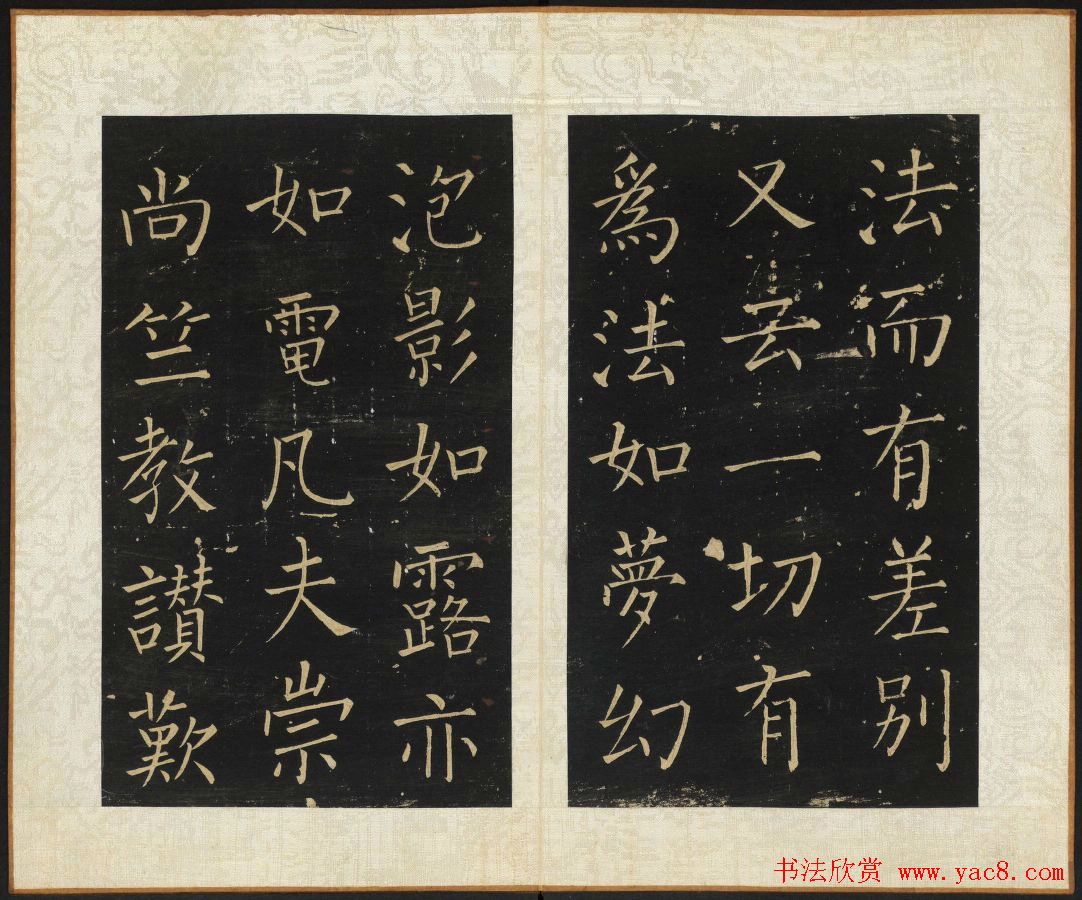 法而有差别
又云一切有
為法如夢幻
泡影如露亦
如電凡夫崇
尚竺教讃歎
书法欣赏 www.yac8.com